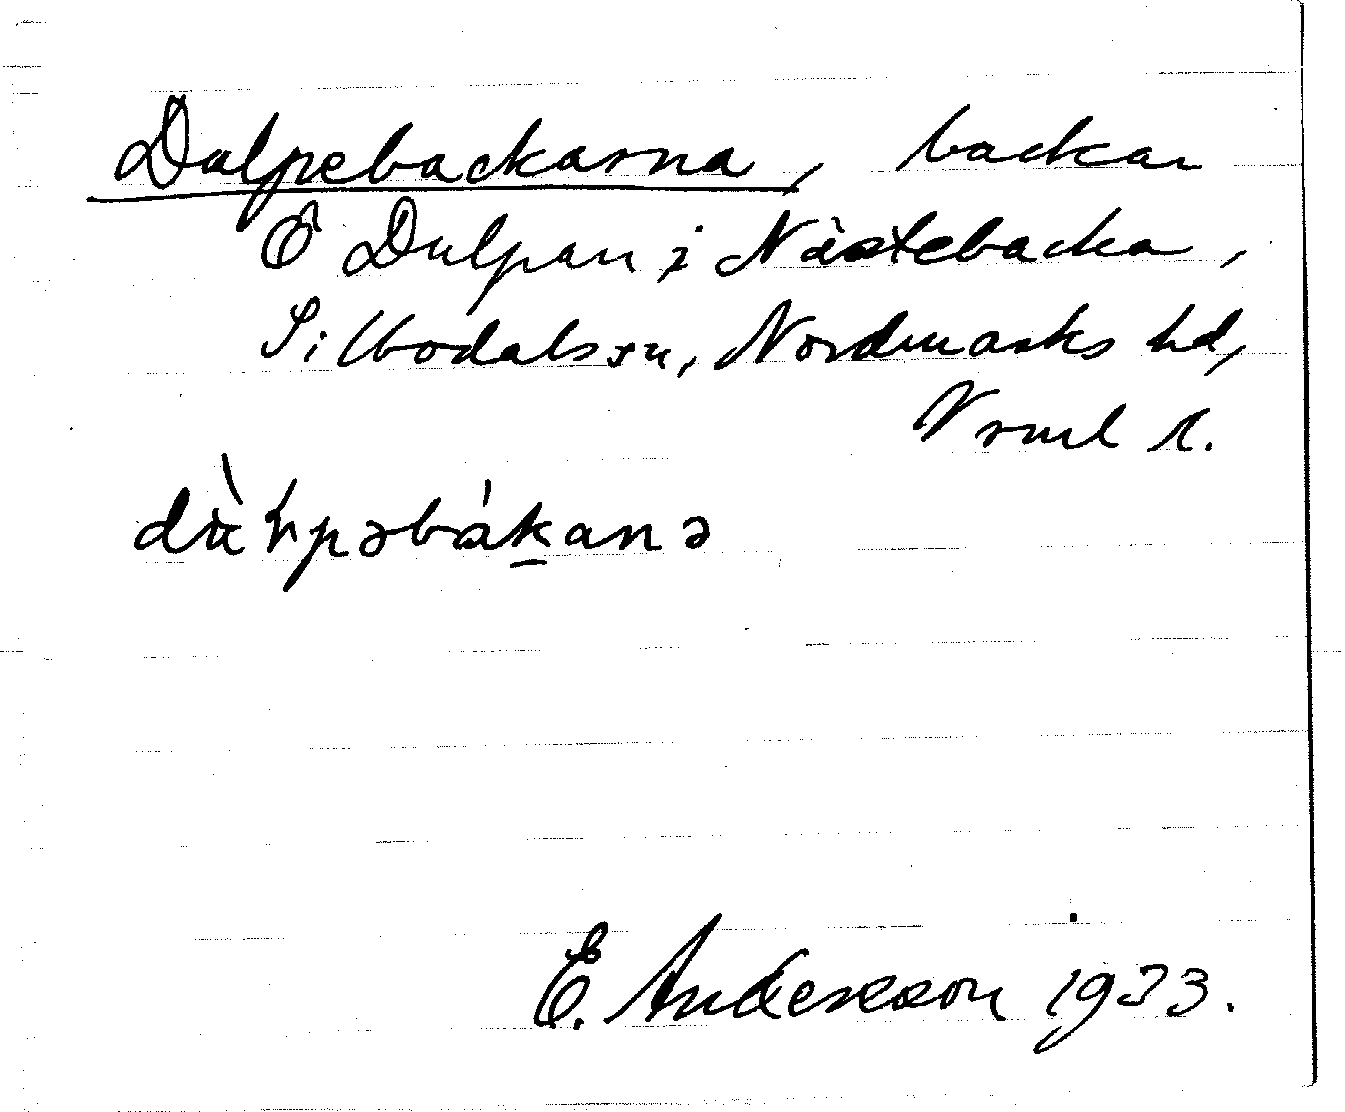 Dulpebackarna, backar
Ö Dulpan i Nästebacka,
Silbodals sn, Nordmarks hd,
Vrml l.
E. Andersson 1933.